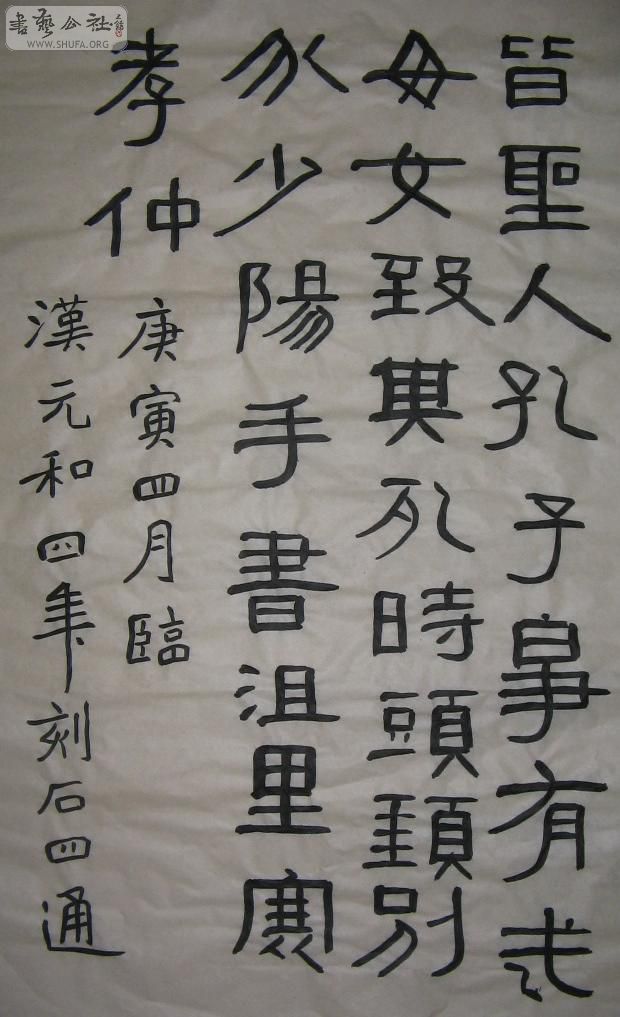 書藝公社
WWW.SHUFA.ORG
皆聖人孔子有
毋女致死時頭頸別
少陽手書沮里
孝仲
庚寅四月臨
漢元和四年刻石四通